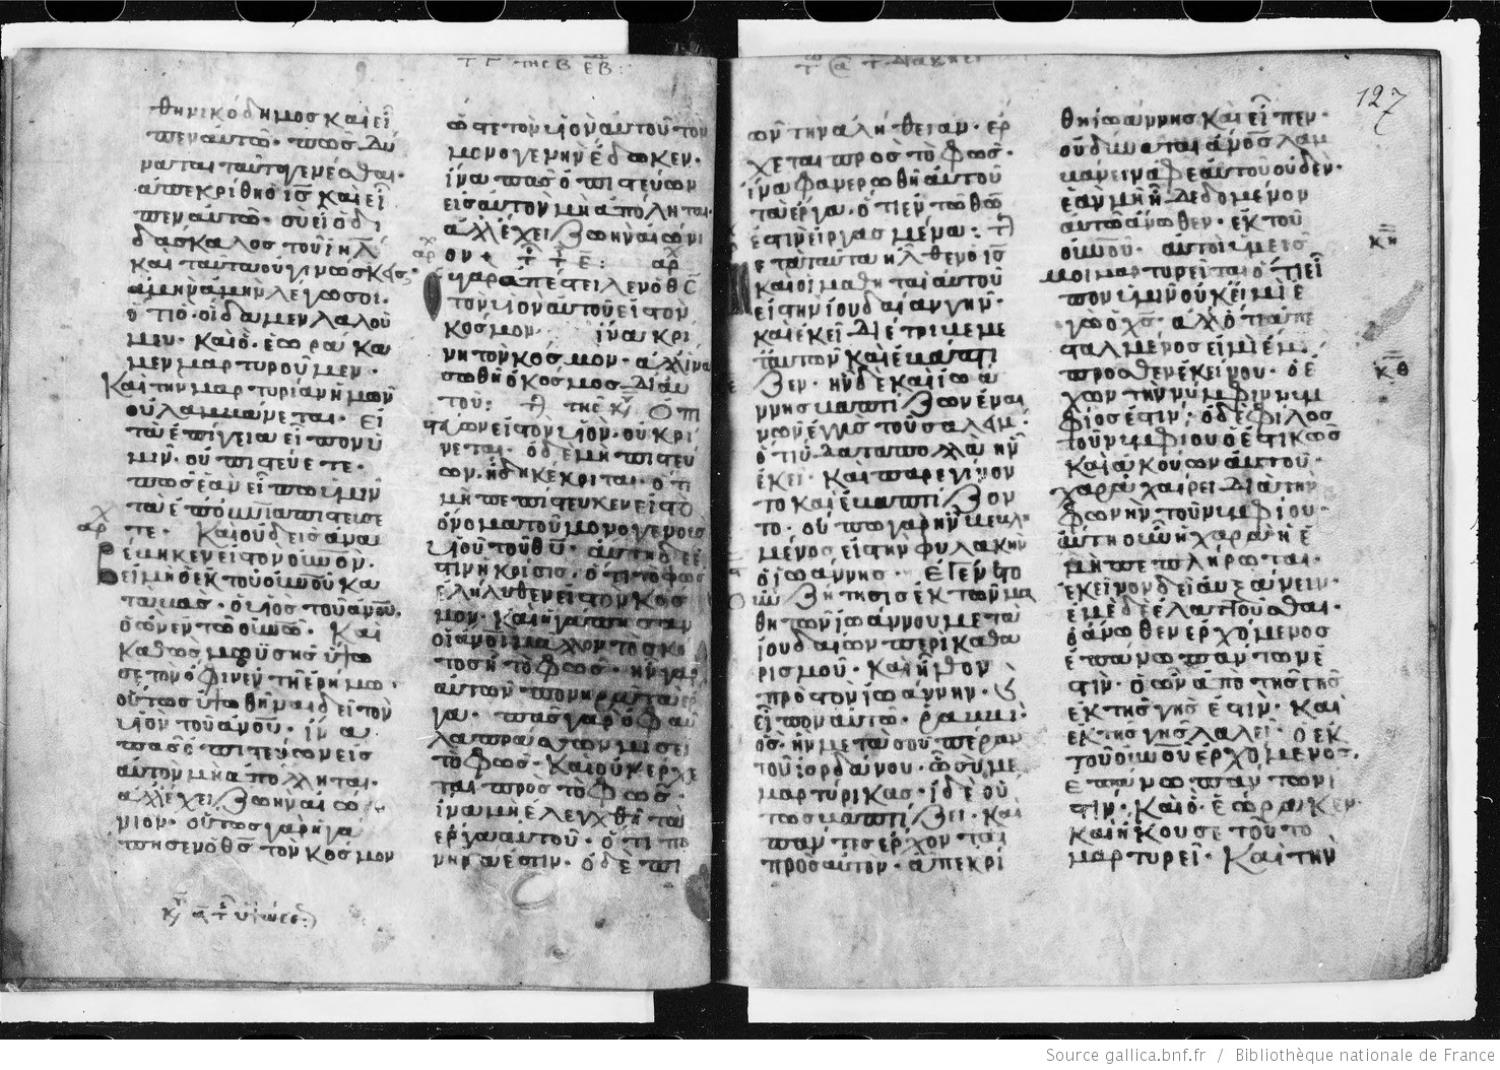 θηνικόδημος καὶ εἶ
πεν αὐτῶ· πῶς δύ
ναται ταῦτα γενέσθαι·
ἀπεκρίθη ὁ ι̅ς̅ καὶ εἶ
πεν αὐτῶ· σὺ εἶ ὁ δι
δάσκαλος τοῦ ι̅η̅λ̅
καὶ ταῦτα οὐ γινώσκεις·
ἀμὴν ἀμὴν λέγω σοι.
ὅτι ὃ οἴδαμεν λαλοῦ
μεν· καὶ ὃ ἑωράκα
μεν μαρτυροῦμεν·
Καὶ τὴν μαρτυρίαν ἡμῶν
οὐ λαμμάνεται· εἰ
τὰ ἐπίγεια εἶπον ὑ
μῖν· οὐ πιστεύετε·
πῶς ἐὰν εἴπω ὑμῖν
τὰ ἐπουνια πιστευσε
τε· Καὶ οὐδεὶς ἀνα
βέβηκεν εἰς τὸν ου̅ν̅ο̅ν̅·
εἰ μὴ ὁ ἐκ τοῦ οὐνοῦ κα
ταβάς· ὁ υἱὸς τοῦ ἀνου·
ὁ ὢν ἐν τῶ οὐνῶ· Καὶ
καθὼς μωϋσῆς ὕψω
σε τὸν ὄφιν ἐν τῆ ἐρήμω·
οὕτως ὑψωθῆναι δεῖ τὸν
υἱὸν τοῦ ἀνου· ἵνα
πᾶς ὁ πιστεύων εἰς
αὐτὸν μὴ ἀπόλληται·
ἀλλ ἔχει ζωὴν αἰώ
νιον· οὕτως γὰρ ἠγά
πησεν ὁ θ̅ς̅ τὸν κόσμον
ὥστε τὸν υἱὸν αὐτοῦ τὸν
μονογενὴν ἔδωκεν·
ἵνα πᾶς ὁ πιστεύων
εἰς αὐτὸν μὴ ἀπόληται·
ἀλλ ἔχει ζωὴν αἰώνι
ον
γὰρ ἀπέστειλεν ὁ θ̅ς̅
τὸν υἱὸν αὐτοῦ εἰς τὸν
κόσμον ἵνα κρί
νη τὸν κόσμον· ἀλλ ἵνα
σωθῆ ὁ κόσμος δι αὐ
τοῦ: Ὁ πι
στεύων εἰς τὸν υἱὸν· οὐ κρί
νεται· ὁ δὲ μὴ πιστεύ
ων· ἤδη κέκριται· ὅτι
μὴ πεπίστευκεν εἰς τὸ
ὄνομα τοῦ μονογενοῦς
υἱοῦ τοῦ θ̅υ̅· αὕτη δέ ἐ
στιν ἡ κρίσις· ὅτι τὸ φῶς
ἐλήλυθεν εἰς τὸν κόσ
μον· καὶ ἠγάπησαν
οἱ ἄνοι μᾶλλον τὸ σκό
τος ἢ τὸ φῶς· ἦν γὰρ
αὐτῶν πονηρὰ τὰ ἔρ
γα· πᾶς γὰρ ὁ φαῦ
λα πράσσων μισεῖ
τὸ φῶς· καὶ οὐκ ἔρχε
ται πρὸς τὸ φῶς·
ἵνα μὴ ἐλεγχθῆ τὰ
ἔργα αὐτοῦ· ὅτι πο
νηρά ἐστιν· ὁ δὲ ποι
127
ῶν τὴν ἀλήθειαν· ἔρ
χεται πρὸς τὸ φῶς·
ἵνα φανερωθῆ αὐτοῦ
τὰ ἔργα· ὅτι ἐν τῶ θ̅ω̅
ἐστὶν εἰργασμένα:
ετὰ ταῦτα ἦλθεν ὁ ι̅ς̅
καὶ οἱ μαθηταὶ αὐτοῦ
εἰς τὴν ἰουδαίαν γῆν·
καὶ ἐκεῖ διέτριμε με
τ αὐτῶν καὶ ἐμάπτι
ζεν· ἦν δὲ καὶ ἰωά
ννης μαπτίζων ἐν αἰ
νῶν ἐγγὺς τοῦ σαλήμ·
ὅτι ὕδατα πολλὰ ἦν
ἐκεῖ· Καὶ παρεγίνον
το καὶ ἐμαπτίζον
το· οὔπω γὰρ ἦν μεμλη
μένος εἰς τὴν φυλακὴν
ὁ ἰωάννης· ἐγένετο
οὖν ζήτησις ἐκ τῶν μα
θητῶν ἰωάννου μετὰ
ἰουδαίων περὶ καθα
ρισμοῦ· Καὶ ἦλθον
πρὸς τὸν ἰωάννην· καὶ
εἶπον αὐτῶ· ῥαμμί·
ὃς ἦν μετὰ σοῦ πέραν
τοῦ ἰορδάνου· ὧ σὺ με
μαρτύρικας· ἴδε οὗ
τος μαπτίζει· Καὶ
πάντες ἔρχονται
πρὸς αὐτόν· ἀπεκρί
θη ἰωάννης καὶ εἶπεν·
οὐ δύναται ἄνος λαμ
μάνειν ἀφ ἑαυτοῦ οὐδὲν·
ἐὰν μὴ ἦ δεδομένον
αὐτῶ ἄνωθεν· ἐκ τοῦ
οὐνοῦ· αὐτοὶ ὑμεῖς
μοι μαρτυρεῖται ὅτι εἶ
πον ὑμῖν οὐκ εἰμὶ ἐ
γὼ ὁ χ̅ς̅· ἀλλ ὅτι ἀπε
σταλμένος εἰμὶ ἔμ
προσθεν ἐκείνου· ὁ ἔ
χων τὴν νύμφην νυμ
φίος ἐστίν· ὁ δὲ φίλος
τοῦ νυμφίου ὁ ἑστικὼς
καὶ ἀκούων αὐτοῦ·
χαρᾶ χαίρει διὰ τὴν
φωνὴν τοῦ νυμφίου·
αὕτη οὖν ἡ χαρὰ ἡ ἐ
μὴ πεπλήρωται·
ἐκεῖνον δεῖ αὐξάνειν·
ἐμὲ δὲ ἐλαττοῦσθαι·
ὁ ἄνωθεν ἐρχόμενος
ἐπάνω πάντων ἐ
στίν· ὁ ὢν ἀπὸ τῆς γῆς
ἐκ τῆς γῆς ἐστίν· Καὶ
ἐκ τῆς γῆς λαλεῖ· ὁ ἐκ
τοῦ οὐνοῦ ἐρχόμενος·
ἐπάνω πάντων ἐ
στίν· Καὶ ὃ ἑώρακεν
καὶ ἤκουσε τοῦτο
μαρτυρεῖ· Καὶ τὴν
κη
κθ
Source gallica.bnf.fr / Bibliothèque nationale de France